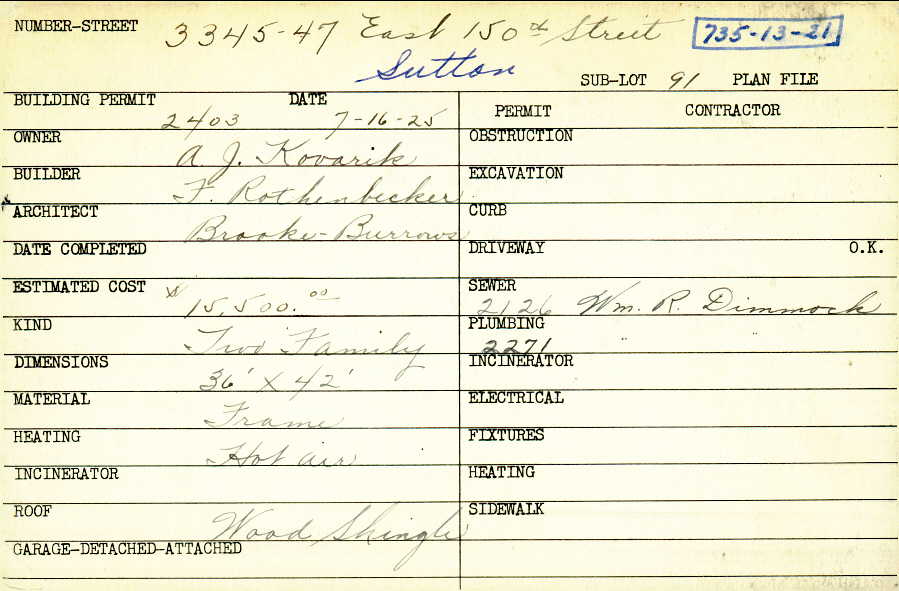 NUMBER-STREET 3345-47 East 150th Street 735-13-21
Sutton
SUB-LOT 91 PLAN FILE
BUILDING PERMIT 2403 DATE 7-16-25
PERMIT CONTRACTOR
OWNER A. J. Kovarik
OBSTRUCTION
BUILDER F. Rothenbecker
EXCAVATION
ARCHITECT Brooke-Burrows
CURB
DATE COMPLETED
DRIVEWAY O.K.
ESTIMATED COST $15,500.00
SEWER 2126 Wm. R. Dimmock
KIND Two Family
PLUMBING 2271
DIMENSIONS 36' X 42'
INCINERATOR
MATERIAL Frame
ELECTRICAL
HEATING Hot air
FIXTURES
INCINERATOR
HEATING
ROOF Wood Shingle
SIDEWALK
GARAGE-DETACHED-ATTACHED